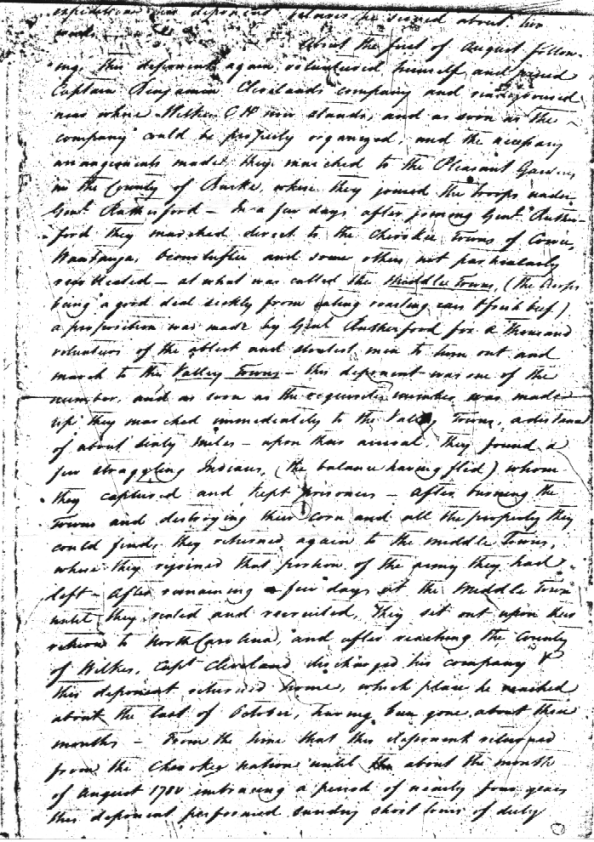 expedition was deponent believes he served about two
About the first of August follow-
ing this deponent again volunteered himself and joined
Captain Benjamin Clevelands company and rendezvoused
near where Wilkes C H now stands, and as soon as the
company could be properly organized, and the necessary
arrangements made, they marched to the Pleasant Gardens
in the County of Burke, where they joined the troops under
Genl. Rutherford – In a few days after joining Genl. Ruther-
ford they marched direct to the Cherokee towns of Cowee,
Wautauga, and some others not particularly
recollected – at what was called the Middle Towns, (the troops
being a good deal sickly from eating roasting ears & fresh beef)
a proposition was made by Genl Rutherford for a thousand
volunteers of the ablest and stoutest men to turn out and
march to the Valley Towns – this deponent was one of the
number, and as soon as the requisite number was made
up they marched immediately to the Valley Towns, a distance
of about sixty miles – upon their arrival they found a
few straggling Indians, (the balance having fled) whom
they captured and kept prisoners – after burning the
Towns and destroying their corn and all the property they
could find, they returned again to the Middle Towns,
where they rejoined that portion of the army they had
left – after remaining a few days at the Middle Town
until they rested and recruited, they set out upon their
return to North Carolina, and after reaching the County
of Wilkes, Capt Cleveland discharged his company &
this deponent returned home, which place he reached
about the last of October, having been gone about three
months – From the time that this deponent returned
from the Cherokee nation until about the month
of August 1780 embracing a period of nearly four years
this deponent performed sundry short terms of duty